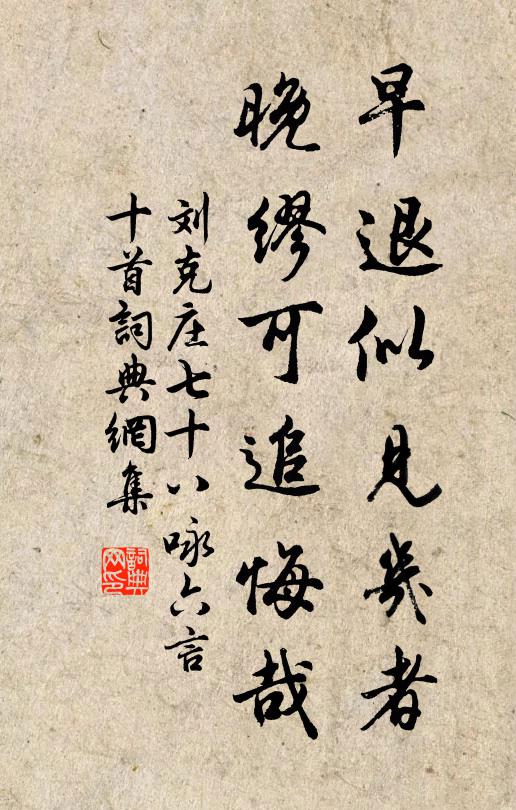 早退似见几者
晚缪可追悔哉
刘克庄七十八咏六言
十首詞典網集
詞典网印